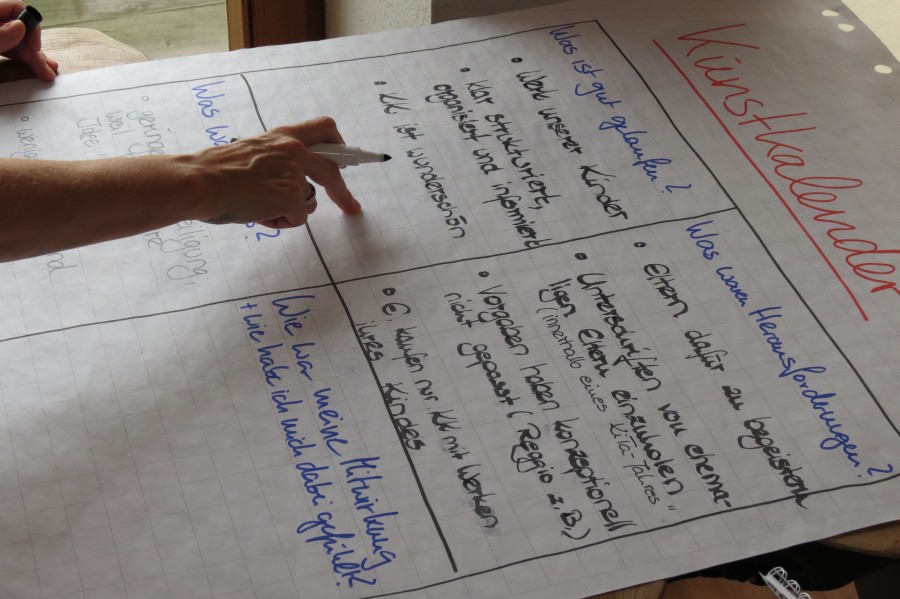 Kunstkalender
Was ist gut gelaufen?
• Werk unserer Kinder
• klar strukturiert,
organisiert und informiert
• KK ist wunderschön
Was waren Herausforderungen?
• Eltern dafür zu begeistern
• Unterschriften von ehema-
ligen Eltern einzuholen
(innerhalb eines Kita-Jahres"
• Vorgaben haben konzeptionell
nicht gepasst (Reggio z.B.)
• E. kaufen nur KK mit Werken
ihres Kindes
Was
weil
Idee
Wie war meine Mitwirkung
+ wie habe ich mich dabei gefühlt?